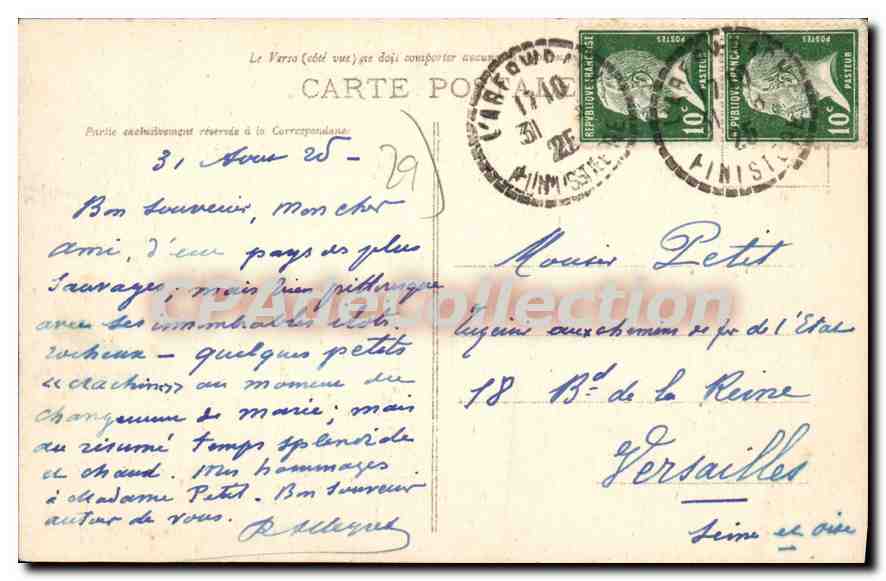 Le Verso (côté vue) ne doit comporter aucune
CARTE POSTALE
Partie exclusivement réservée à la Correspondance
31 Aout 25 -
29
Bon souvenir, mon cher
ami, d'un pays des plus
sauvages; mais bien pittoresque
avec ses innombrables ilots
rocheux - quelques petits
"crachins" au moment du
changement de marée; mais
au résumé temps splendide
et chaud. Mes hommages
à Madame Petit. Bon souvenir
autour de vous.
L'ARCOU
17 10
31
25
FINISTERE
FINISTE
REPUBLIQUE FRANÇAISE
POSTES
PASTEUR
10c
REPUBLIQUE FRANÇAISE
POSTES
PASTEUR
10c
Monsieur Petit
Ingénieur aux chemins de fer de l'Etat
18 Bd de la Reine
Versailles
Seine et Oise
CPArteCollection